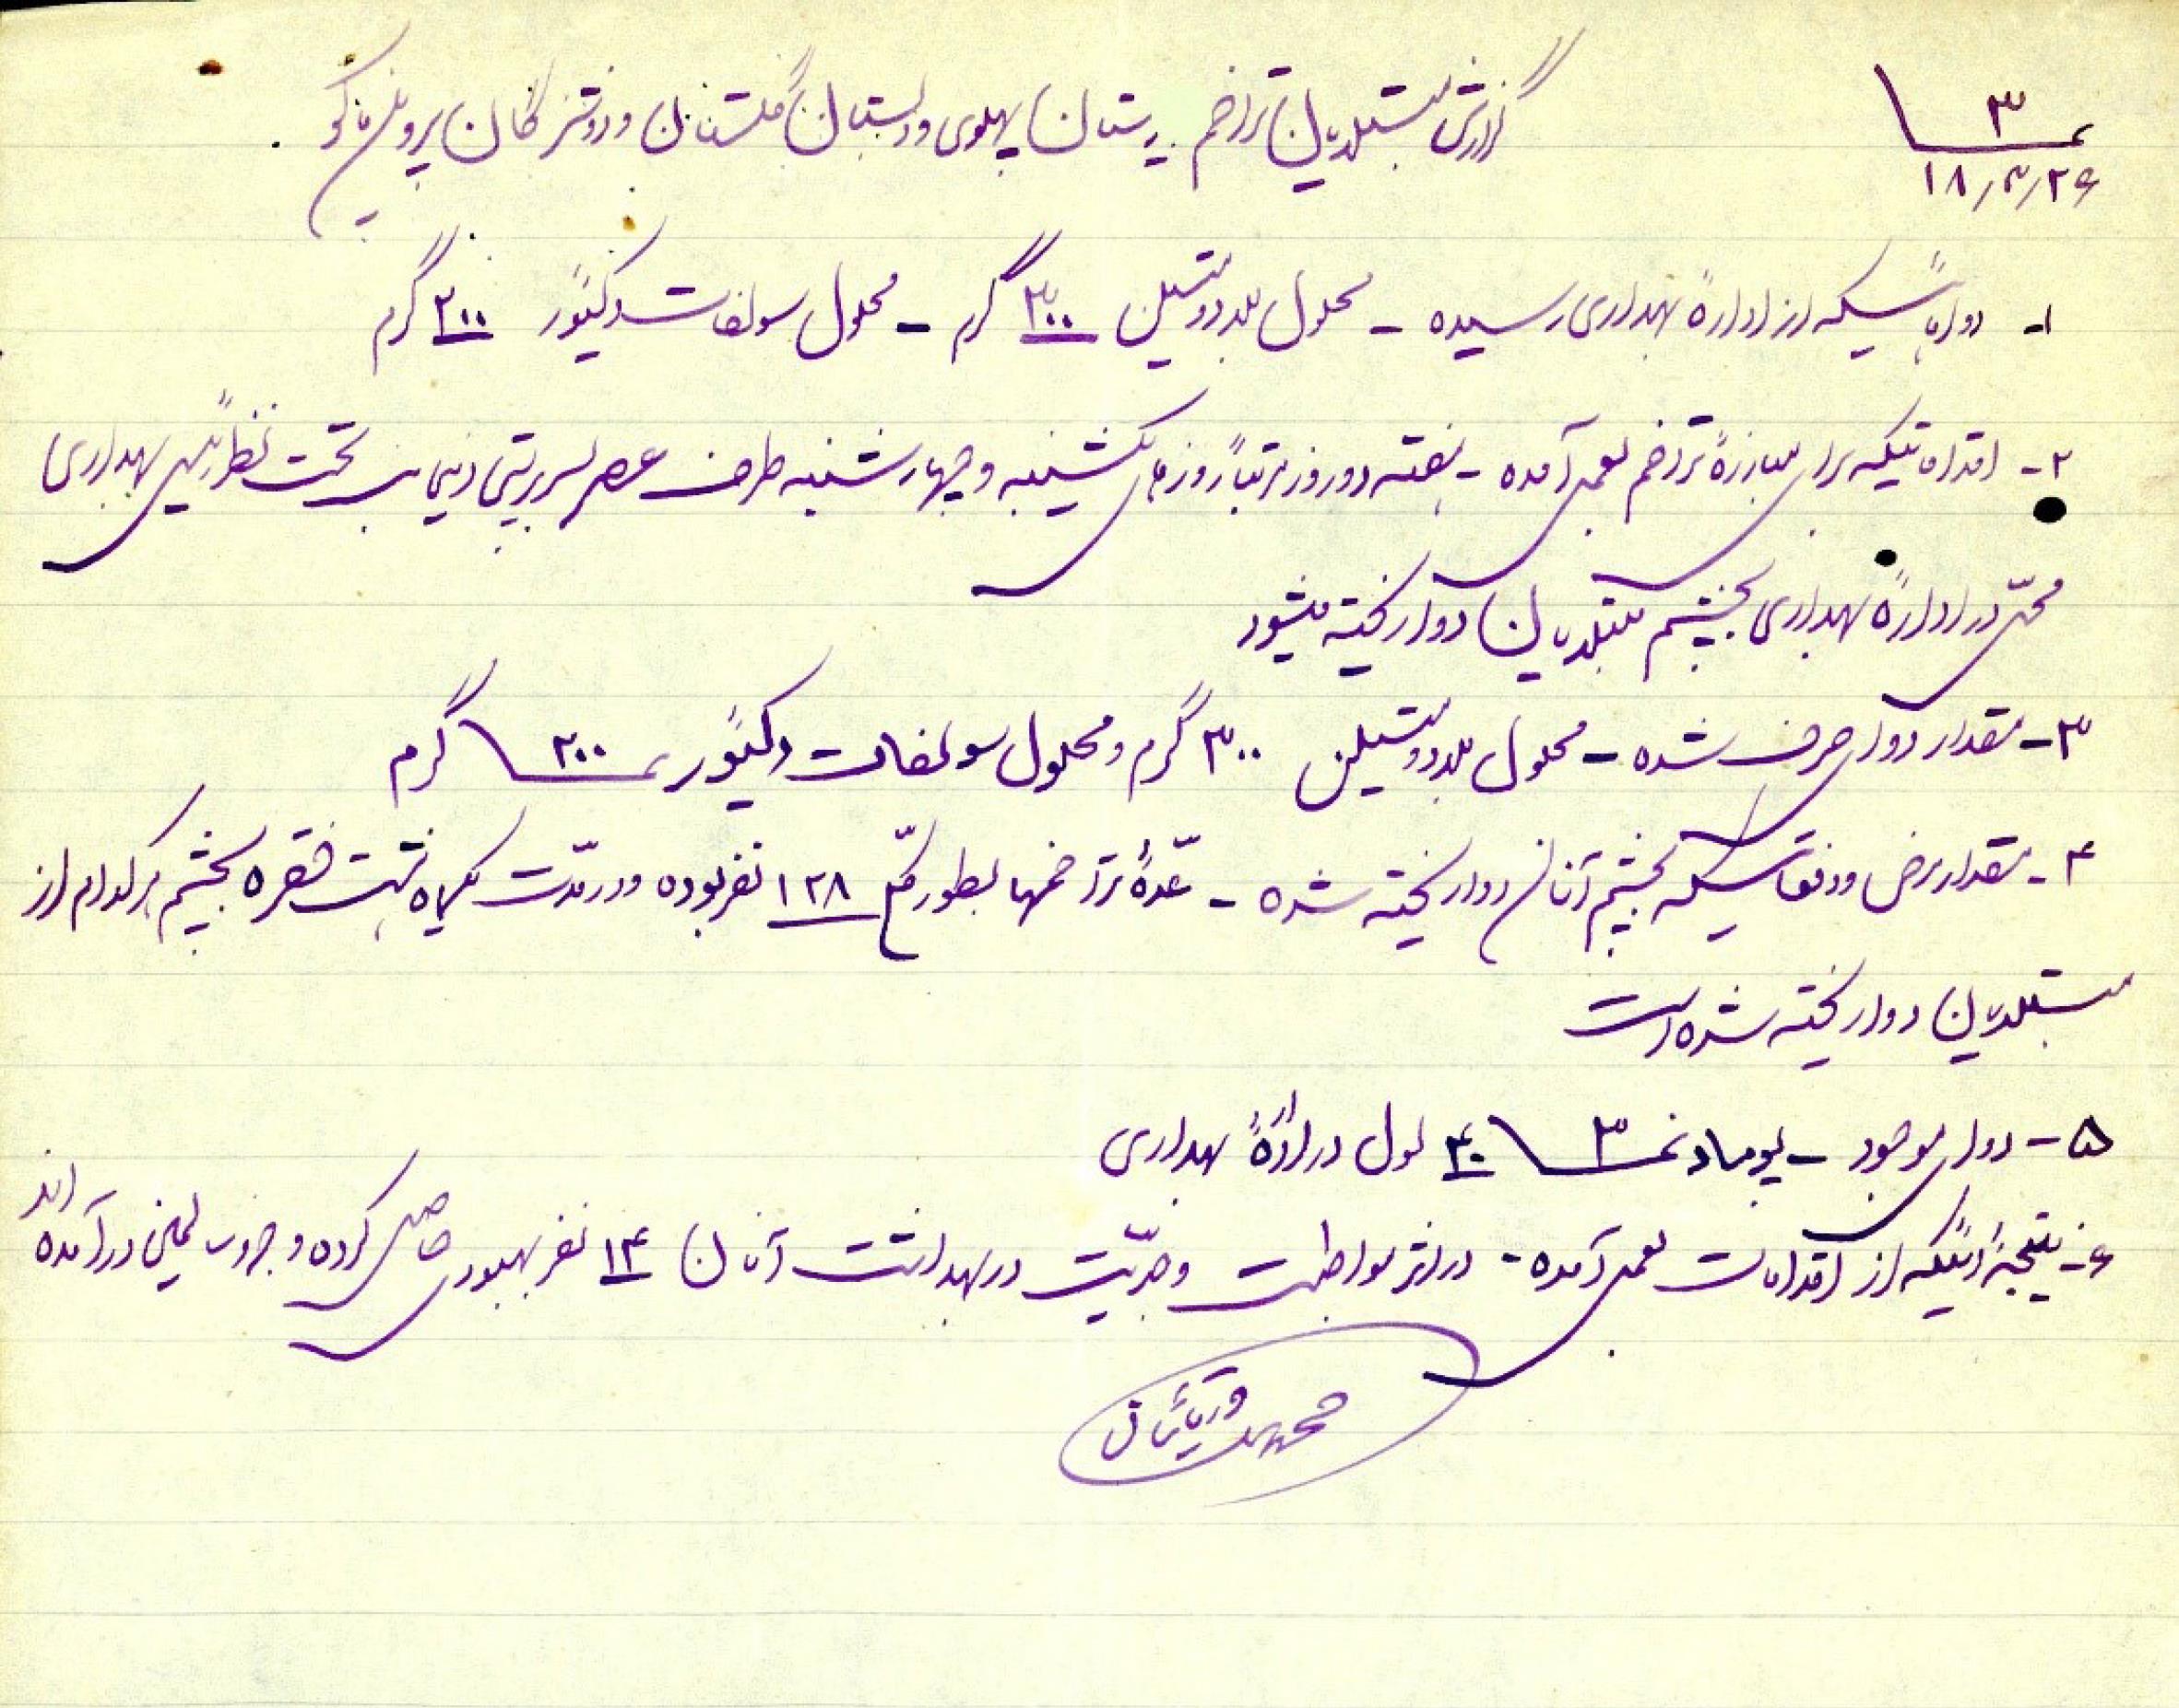 نمره ۳
۱۸/۳/۲۶
گزارش مبتلایان تراخم دبیرستان پهلوی و دبستان گلستان و دوشیزگان پروین ماکو .
۱- دواهائیکه از ادارهٔ بهداری رسیده - محلول بلودومتیلن ۳۰۰ گرم - محلول سولفات دوکنیور ۲۰۰ گرم
۲- اقداماتیکه برای مبارزهٔ تراخم بعمل آمده - هفته دو روز مرتباً روزهای یکشنبه و چهارشنبه طرف عصر بسرپرستی تحت نظر رئیس بهداری
محل در ادارهٔ بهداری بچشم مبتلایان دوا ریخته میشود
۳- مقدار دوای صرف شده - محلول بلودومتیلن ۳۰۰ گرم و محلول سولفات دوکنیور ۲۰۰ گرم
۴- مقدار مرض و دفعاتیکه بچشم آنان دوا ریخته شده - عدّهٔ تراخمها بطور کلّی ۱۲۸ نفر بوده و در مدّت یکماه هشت فقره بچشم هر کدام از
مبتلایان دوا ریخته شده است
۵- دوای موجود - پوماد نمره ۳ ۴۰ لول در ادارهٔ بهداری
۶- نتیجهٔ ایکه از اقدامات بعمل آمده - در اثر مواظبت و جدّیت در بهداشت آنان ۱۴ نفر بهبودی حاصل کرده و درآمده اند
محمد